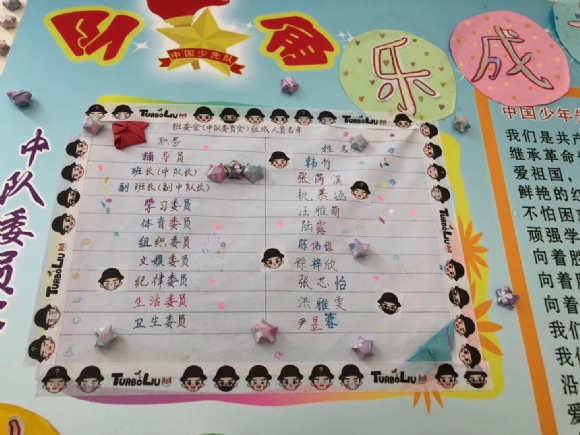 队角
乐成
中国少先队
中队委员
TURBOLIU
TURBOLIU
班委会(中队委员会)组成人员名单
职务 姓名
辅导员 韩竹
班长(中队长) 张芮溪
副班长(副中队长) 杭慕涵
学习委员 汪雅萌
体育委员 陆露
组织委员
文娱委员 徐梓欣
纪律委员 张芯怡
生活委员 洪雅雯
卫生委员 尹昱蓉
TURBOLIU
TURBOLIU
中国少年先
我们是共产
继承革命
爱祖国,
鲜艳的红
不怕困
顽强学
向着胜
向着胜
向着
我们
我们
沿
爱